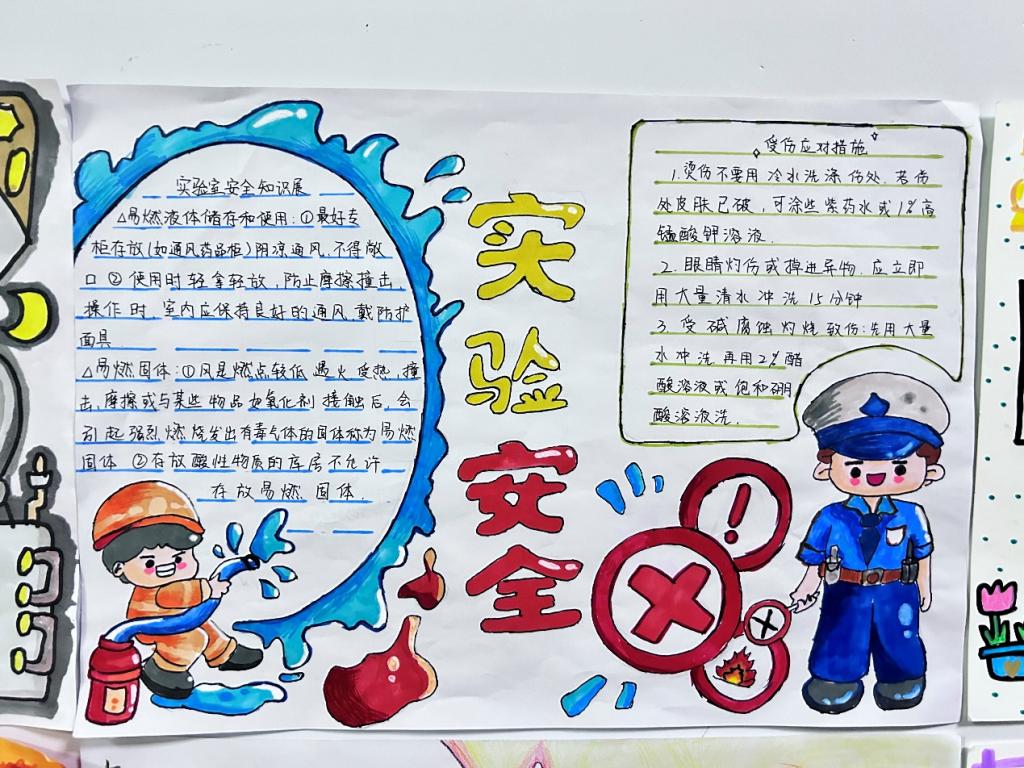 实验室安全知识展
△易燃液体储存和使用:①最好专
柜存放(如通风药品柜)阴凉通风,不得敞
口②使用时轻拿轻放,防止摩擦撞击,
操作时,室内应保持良好的通风,戴防护
面具.
△易燃固体:①凡是燃点较低遇火受热,撞
击,摩擦或与某些物品如氧化剂接触后,会
引起强烈燃烧发出有毒气体的固体称为易燃
固体②存放酸性物质的库房不允许
存放易燃固体.
实验
安全
受伤应对措施
1.烫伤不要用冷水洗涤伤处.若伤
处皮肤已破,可涂些紫药水或1%高
锰酸钾溶液.
2.眼睛灼伤或掉进异物.应立即
用大量清水冲洗15分钟
3.受碱腐蚀灼烧致伤:先用大量
水冲洗再用2%醋
酸溶液或饱和硼
酸溶液洗.